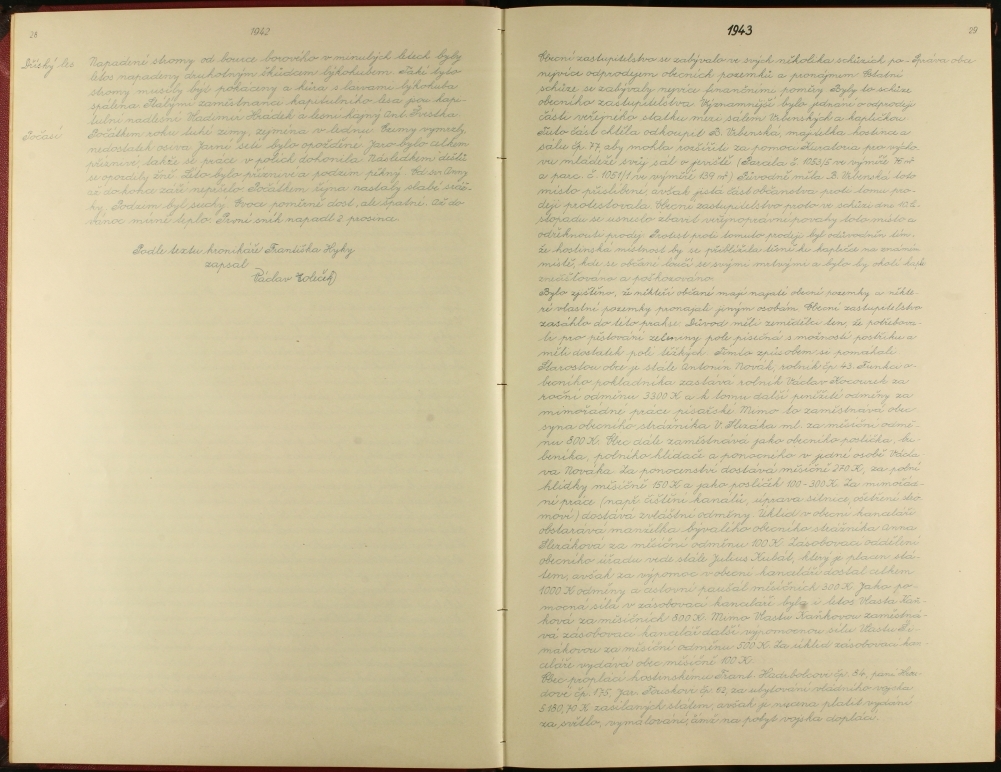 28
1942
Dřínský les
Napadené stromy od bource borového v minulých letech byly
letos napadeny druhotným škůdcem lýkohubem. Také tyto
stromy musily být pokáceny a kůra s larvami lýkohuba
spálena. Stálými zaměstnanci kapitulního lesa jsou kapi-
tulní nadlesní Vladimír Hrádek a lesní hajný Ant.
Počasí
Počátkem roku tuhé zimy, zejména v lednu. Ozimy vymrzly,
nedostatek osiva. Jarní setí bylo opožděné. Jaro bylo celkem
příznivé, takže se práce v polích dohonila. Následkem dešťů
se opozdily žně. Léto bylo příznivé a podzim pěkný. Od sv. Anny
až do konce září nepršelo. Počátkem října nastaly slabé sráž-
ky. Podzim byl suchý. Ovoce poměrně dost, ale špatné. Až do
vánoc mírné teplo. První sníh napadl 2. prosince.
Podle textu kronikáře Františka Hyky
zapsal
Václav Koleček
1943
29
Správa obce
Obecní zastupitelstvo se zabývalo ve svých několika schůzích po-
nejvíce odprodejem obecních pozemků a pronájmem. Ostatní
schůze se zabývaly nejvíce finančními poměry. Byly to schůze
obecního zastupitelstva. Významnější bylo jednání o odprodeji
části veřejného statku mezi sálem Vrbenských a kapličkou.
Tuto část chtěla odkoupit B. Vrbenská, majitelka hostince a
sálu čp. 77, aby mohla rozšířiti za pomoci Kuratoria pro výcho-
vu mládeže svůj sál o jeviště (Parcela č. 1053/5 ve výměře m²
a parc. č. 1051/1 ve výměře 139 m²). Původně měla B. Vrbenská toto
místo přislíbené, avšak jistá část občanstva proti tomu pro-
deji protestovala. Obecní zastupitelstvo proto ve schůzi dne 10. li-
stopadu se usneslo zbavit veřejnoprávní povahy toto místo a
odřeknouti prodej. Protest proti tomuto prodeji byl odůvodněn tím,
že hostinská místnost by se přibližila těsně ke kapličce na známém
místě, kde se občané loučí se svými mrtvými a bylo by okolí kaple
znečišťováno a poškozováno.
Bylo zjištěno, že někteří občané mají najaté obecní pozemky a někte-
ré vlastní pozemky pronajali jiným osobám. Obecní zastupitelstvo
zasáhlo do této prakse. Důvod měli zemědělci ten, že potřebova-
li pro pěstování zeleniny pole písečná s možností postřiku a
měli dostatek polí těžkých. Tímto způsobem si pomáhali.
Starostou obce je stále Antonín Novák, rolník čp. 43. Funkci o-
becního pokladníka zastává rolník Václav Kocourek za
roční odměnu 3300 K a k tomu další peněžité odměny za
mimořádné práce písařské. Mimo to zaměstnává obec
syna obecního strážníka V. Slezáka ml. za měsíční odmě-
nu 800 K. Obec dále zaměstnává jako obecního poslíčka, bu-
beníka, polního hlídače a ponocného v jedné osobě Václa-
va Nováka. Za ponocenství dostává měsíčně 270 K, za polní
hlídky měsíčně 150 K a jako poslíček 100-300 K. Za mimořád-
né práce (např. čištění kanálů, úprava silnice, ošetření stro-
moví) dostává zvláštní odměny. Úklid v obecní kanceláři
obstarává manželka bývalého obecního strážníka Anna
Slezáková za měsíční odměnu 100 K. Zásobovací oddělení
obecního úřadu vede stále Julius Kubát, který je placen stá-
tem, avšak za výpomoc v obecní kanceláři dostal celkem
1000 K odměny a cestovní paušál měsíčních 300 K. Jako po-
mocná síla v zásobovací kanceláři byla i letos Vlasta Kaň-
ková za měsíčních 800 K. Mimo Vlastu Kaňkovou zaměstná-
vá zásobovací kancelář další výpomocnou sílu Vlastu Ši-
mákovou za měsíční odměnu 500 K. Za úklid zásobovací kan-
celáře vydává obec měsíčně 100 K.
Obec připlácí hostinskému Frant. čp. 84, paní
čp. 175, Jar. čp. 62, za ubytování vládního vojska
5.180,70 K zasílaných státem, avšak je nucena platit vydání
za světlo, vymalování, čímž na pobyt vojska doplácí.